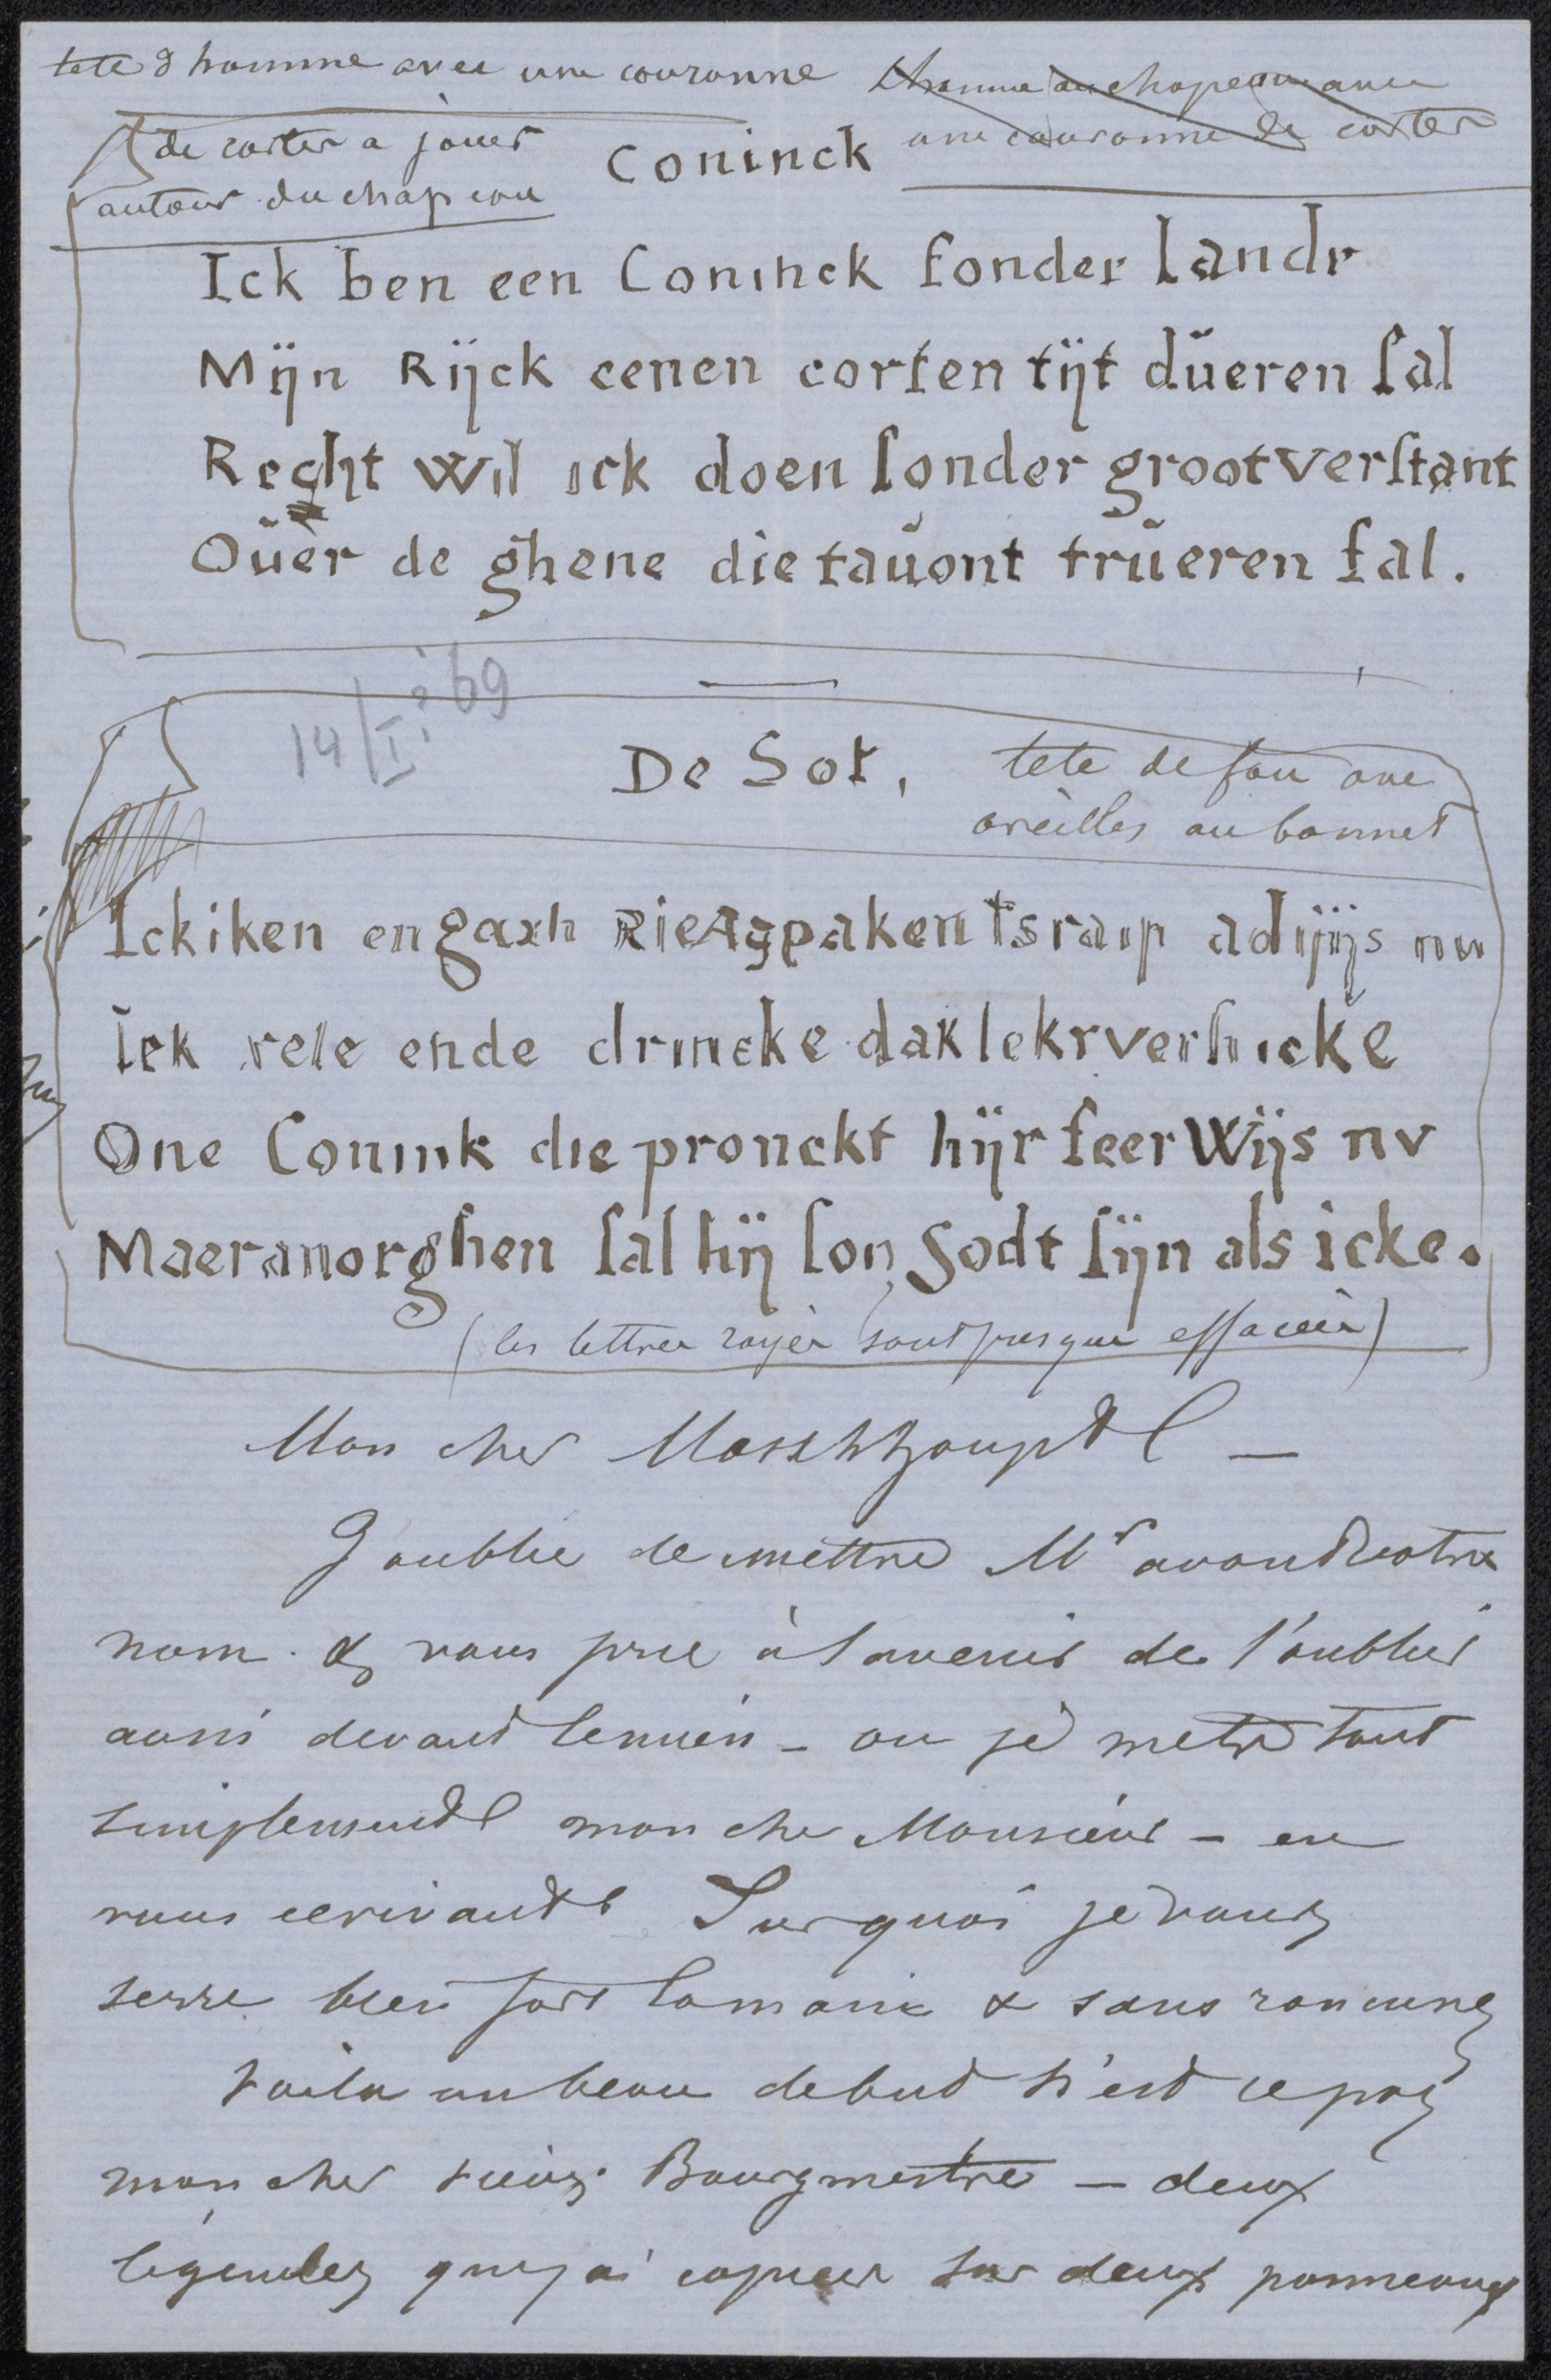 tete d homme avec une couronne
de cartes a jouer
autour du chapeau
l'homme au chapeau avec
une couronne de cartes
Coninck
Ick ben een Coninck sonder landt
Mijn Rijck eenen corten tijt düeren sal
Recht wil ick doen sonder groot verstant
Oüer de ghene die taüont trüeren sal.
14/I ? 69
De Sot,
tete de fou avec
oreilles au bonnet
Ickiken en
Ick ende drincke
One Conink die pronckt hijr seer Wijs nv
Maer morghen sal hij son Sodt sijn als icke.
(les lettres rayés sont presque effacées)
Mon cher
J'oublie de mettre Mr avant votre
nom. & vous prie à l'avenir de l'oublier
aussi devant le mien - ou je metrè tout
simplement mon cher Monsieur - en
vous ecrivant Sur quoi je vous
serre bien fort la main & sans rancune
Voila un beau debut n'est ce pas
mon cher vieux Bourgmestre - deux
légendes que j'ai copiées sur deux panneaux